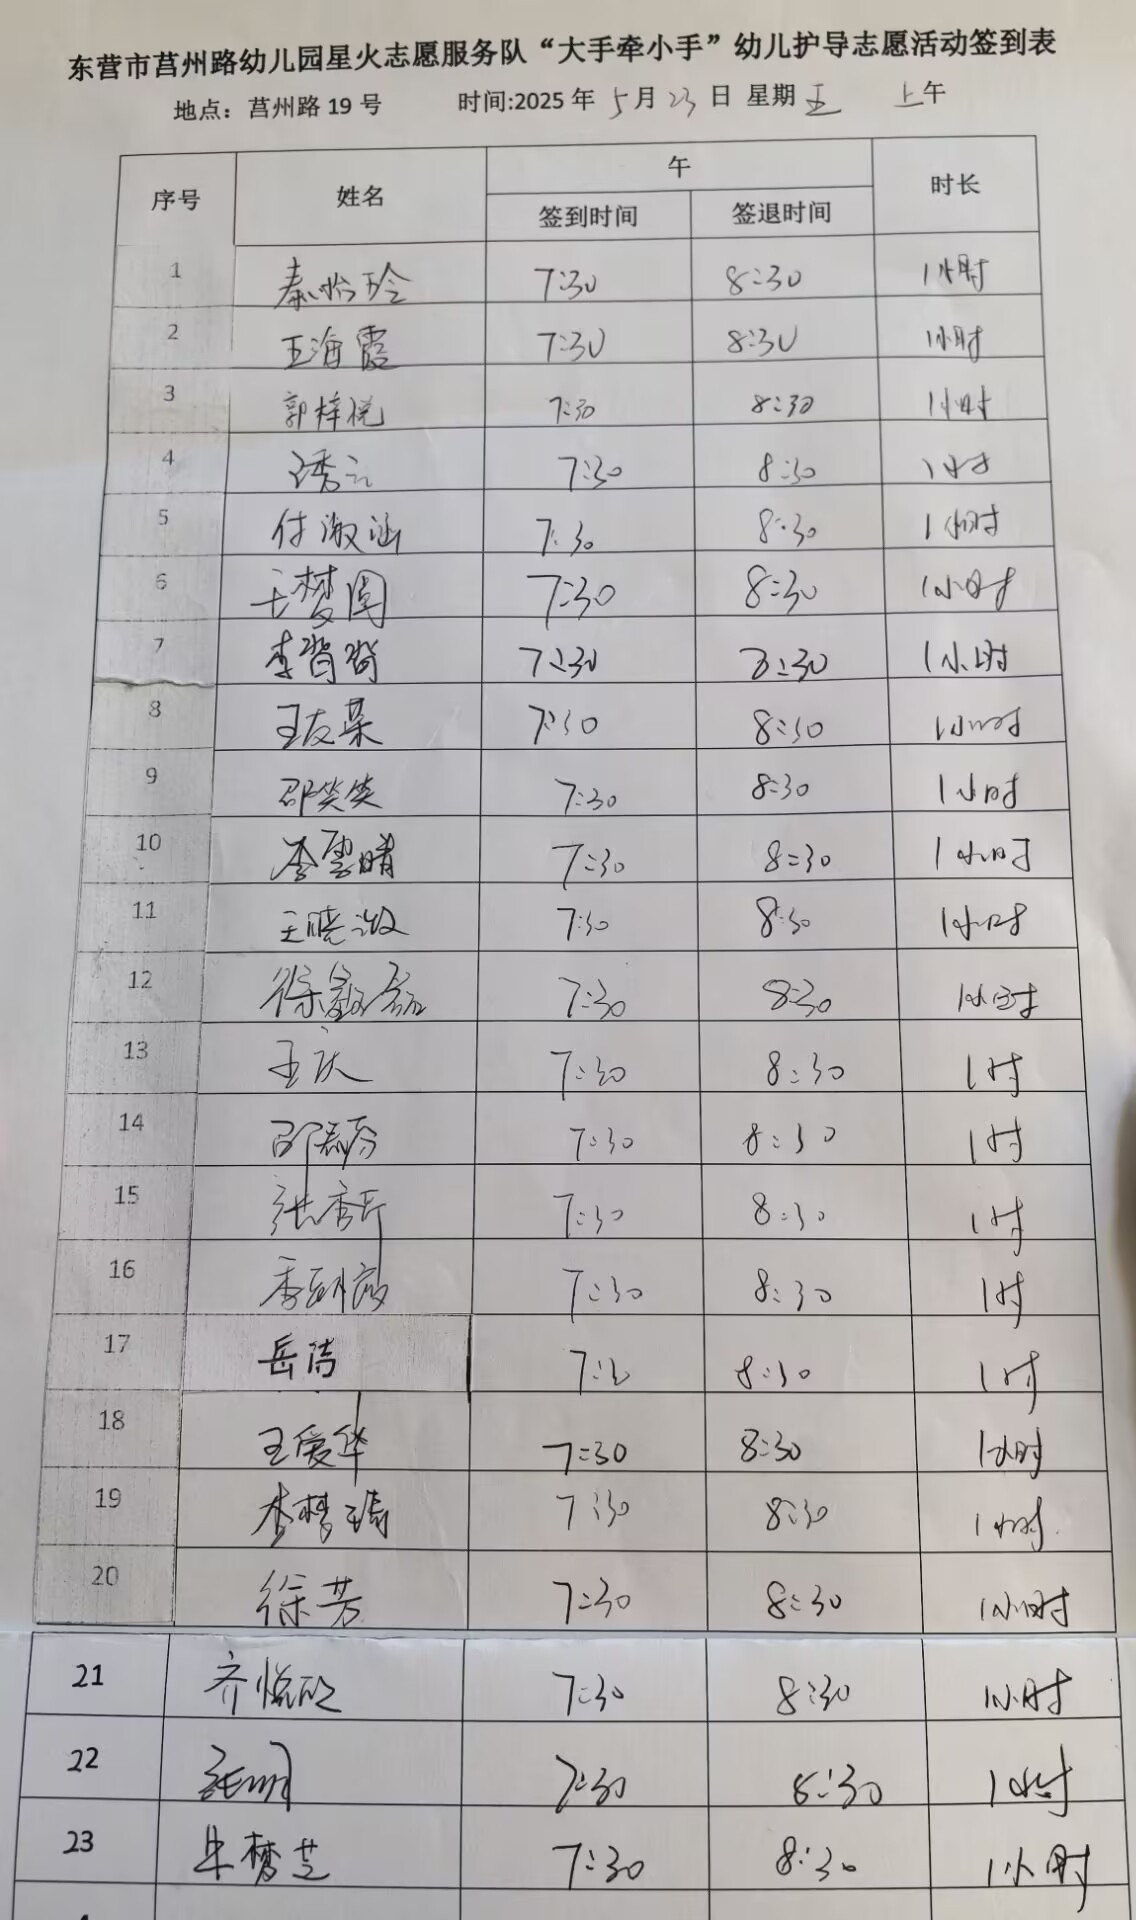 东营市莒州路幼儿园星火志愿服务队“大手牵小手”幼儿护导志愿活动签到表
地点：莒州路 19 号 时间:2025 年 5 月 23 日 星期 五 上午
序号 姓名 午 时长
签到时间 签退时间
1 秦怡玲 7:30 8:30 1小时
2 王海霞 7:30 8:30 1小时
3 郭梓悦 7:30 8:30 1小时
4 7:30 8:30 1小时
5 付淑涵 7:30 8:30 1小时
6 王梦圆 7:30 8:30 1小时
7 7:30 8:30 1小时
8 王友荣 7:30 8:30 1小时
9 邵笑笑 7:30 8:30 1小时
10 李雪晴 7:30 8:30 1小时
11 王晓 7:30 8:30 1小时
12 徐 7:30 8:30 1小时
13 王 7:30 8:30 1时
14 邵 7:30 8:30 1时
15 张 7:30 8:30 1时
16 7:30 8:30 1时
17 岳洁 8:30 1时
18 王爱华 7:30 8:30 1小时
19 李梦 7:30 8:30 1小时
20 徐芳 7:30 8:30 1小时
21 齐悦 7:30 8:30 1小时
22 张明 7:30 8:30 1小时
23 朱梦芝 7:30 8:30 1小时